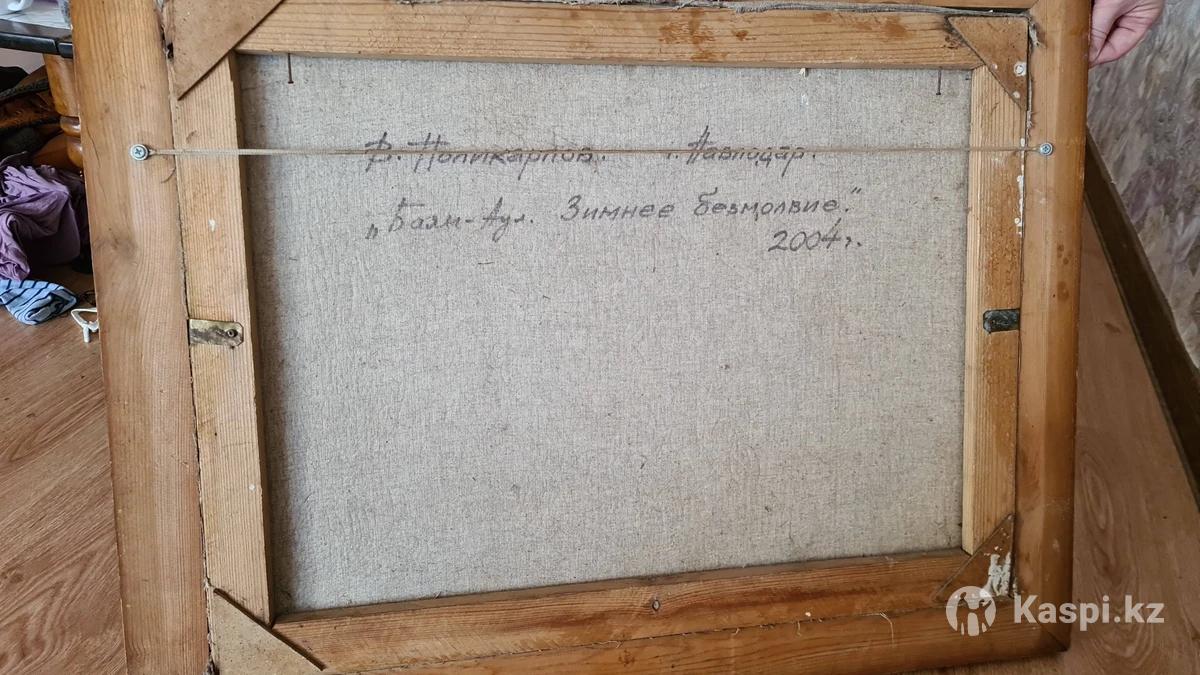 В. Поликарпов. г. Павлодар.
„Баян-Аул. Зимнее безмолвие."
2004г.
Kaspi.kz